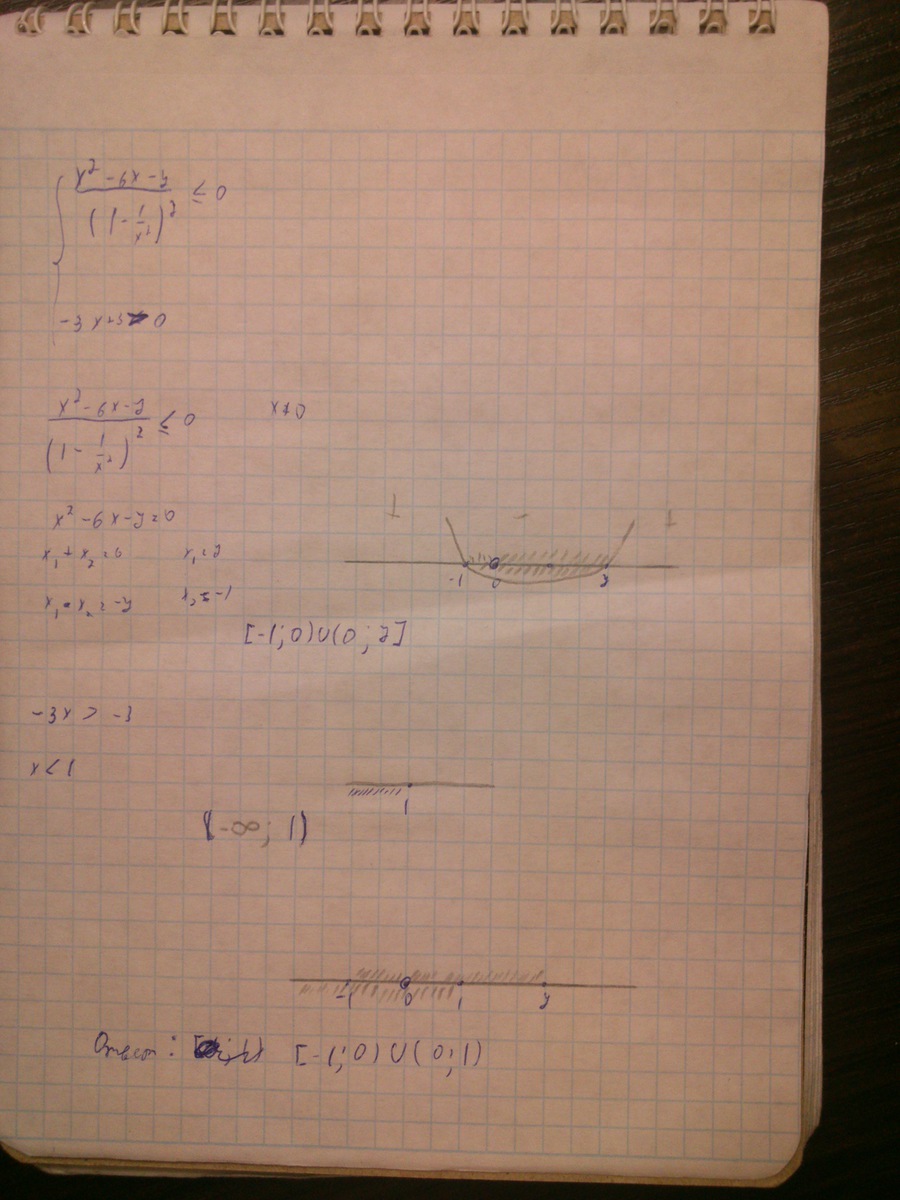 x² - 6x - 7 / (1 - 1/x²)² ≤ 0
-3x + 3 > 0
x² - 6x - 7 / (1 - 1/x²)² ≤ 0 x ≠ 0
x² - 6x - 7 = 0
x₁ + x₂ = 6 x₁ = 7
x₁ • x₂ = -7 x₂ = -1
+ - +
-1 0 7
[-1; 0) ∪ (0; 7]
-3x > -3
x < 1
1
(-∞; 1)
-1 0 1 7
Ответ: [-1; 0) ∪ (0; 1)